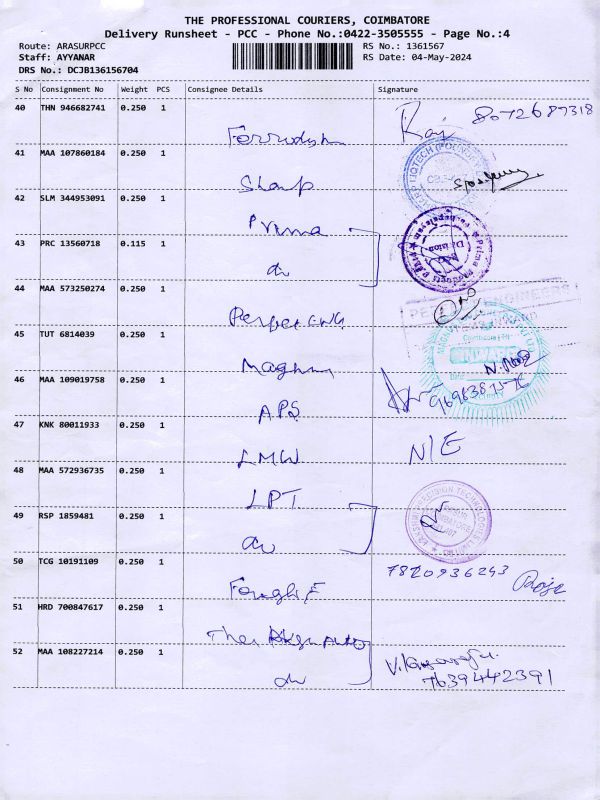 THE PROFESSIONAL COURIERS, COIMBATORE
Delivery Runsheet - PCC - Phone No.:0422-3505555 - Page No.:4
Route: ARASURPCC RS No.: 1361567
Staff: AYYANAR RS Date: 04-May-2024
DRS No.: DCJB136156704
S No Consignment No Weight PCS Consignee Details Signature
40 THN 946682741 0.250 1
Raj 8072687318
41 MAA 107860184 0.250 1
Sharp
42 SLM 344953091 0.250 1
Prima
43 PRC 13560718 0.115 1
do
44 MAA 573250274 0.250 1
Perfect ENG
45 TUT 6814039 0.250 1
46 MAA 109019758 0.250 1
A.P.S
47 KNK 80011933 0.250 1
LMW N/E
48 MAA 572936735 0.250 1
LPT
49 RSP 1859481 0.250 1
do
50 TCG 10191109 0.250 1
7820936243
51 HRD 700847617 0.250 1
52 MAA 108227214 0.250 1
do
7639442391